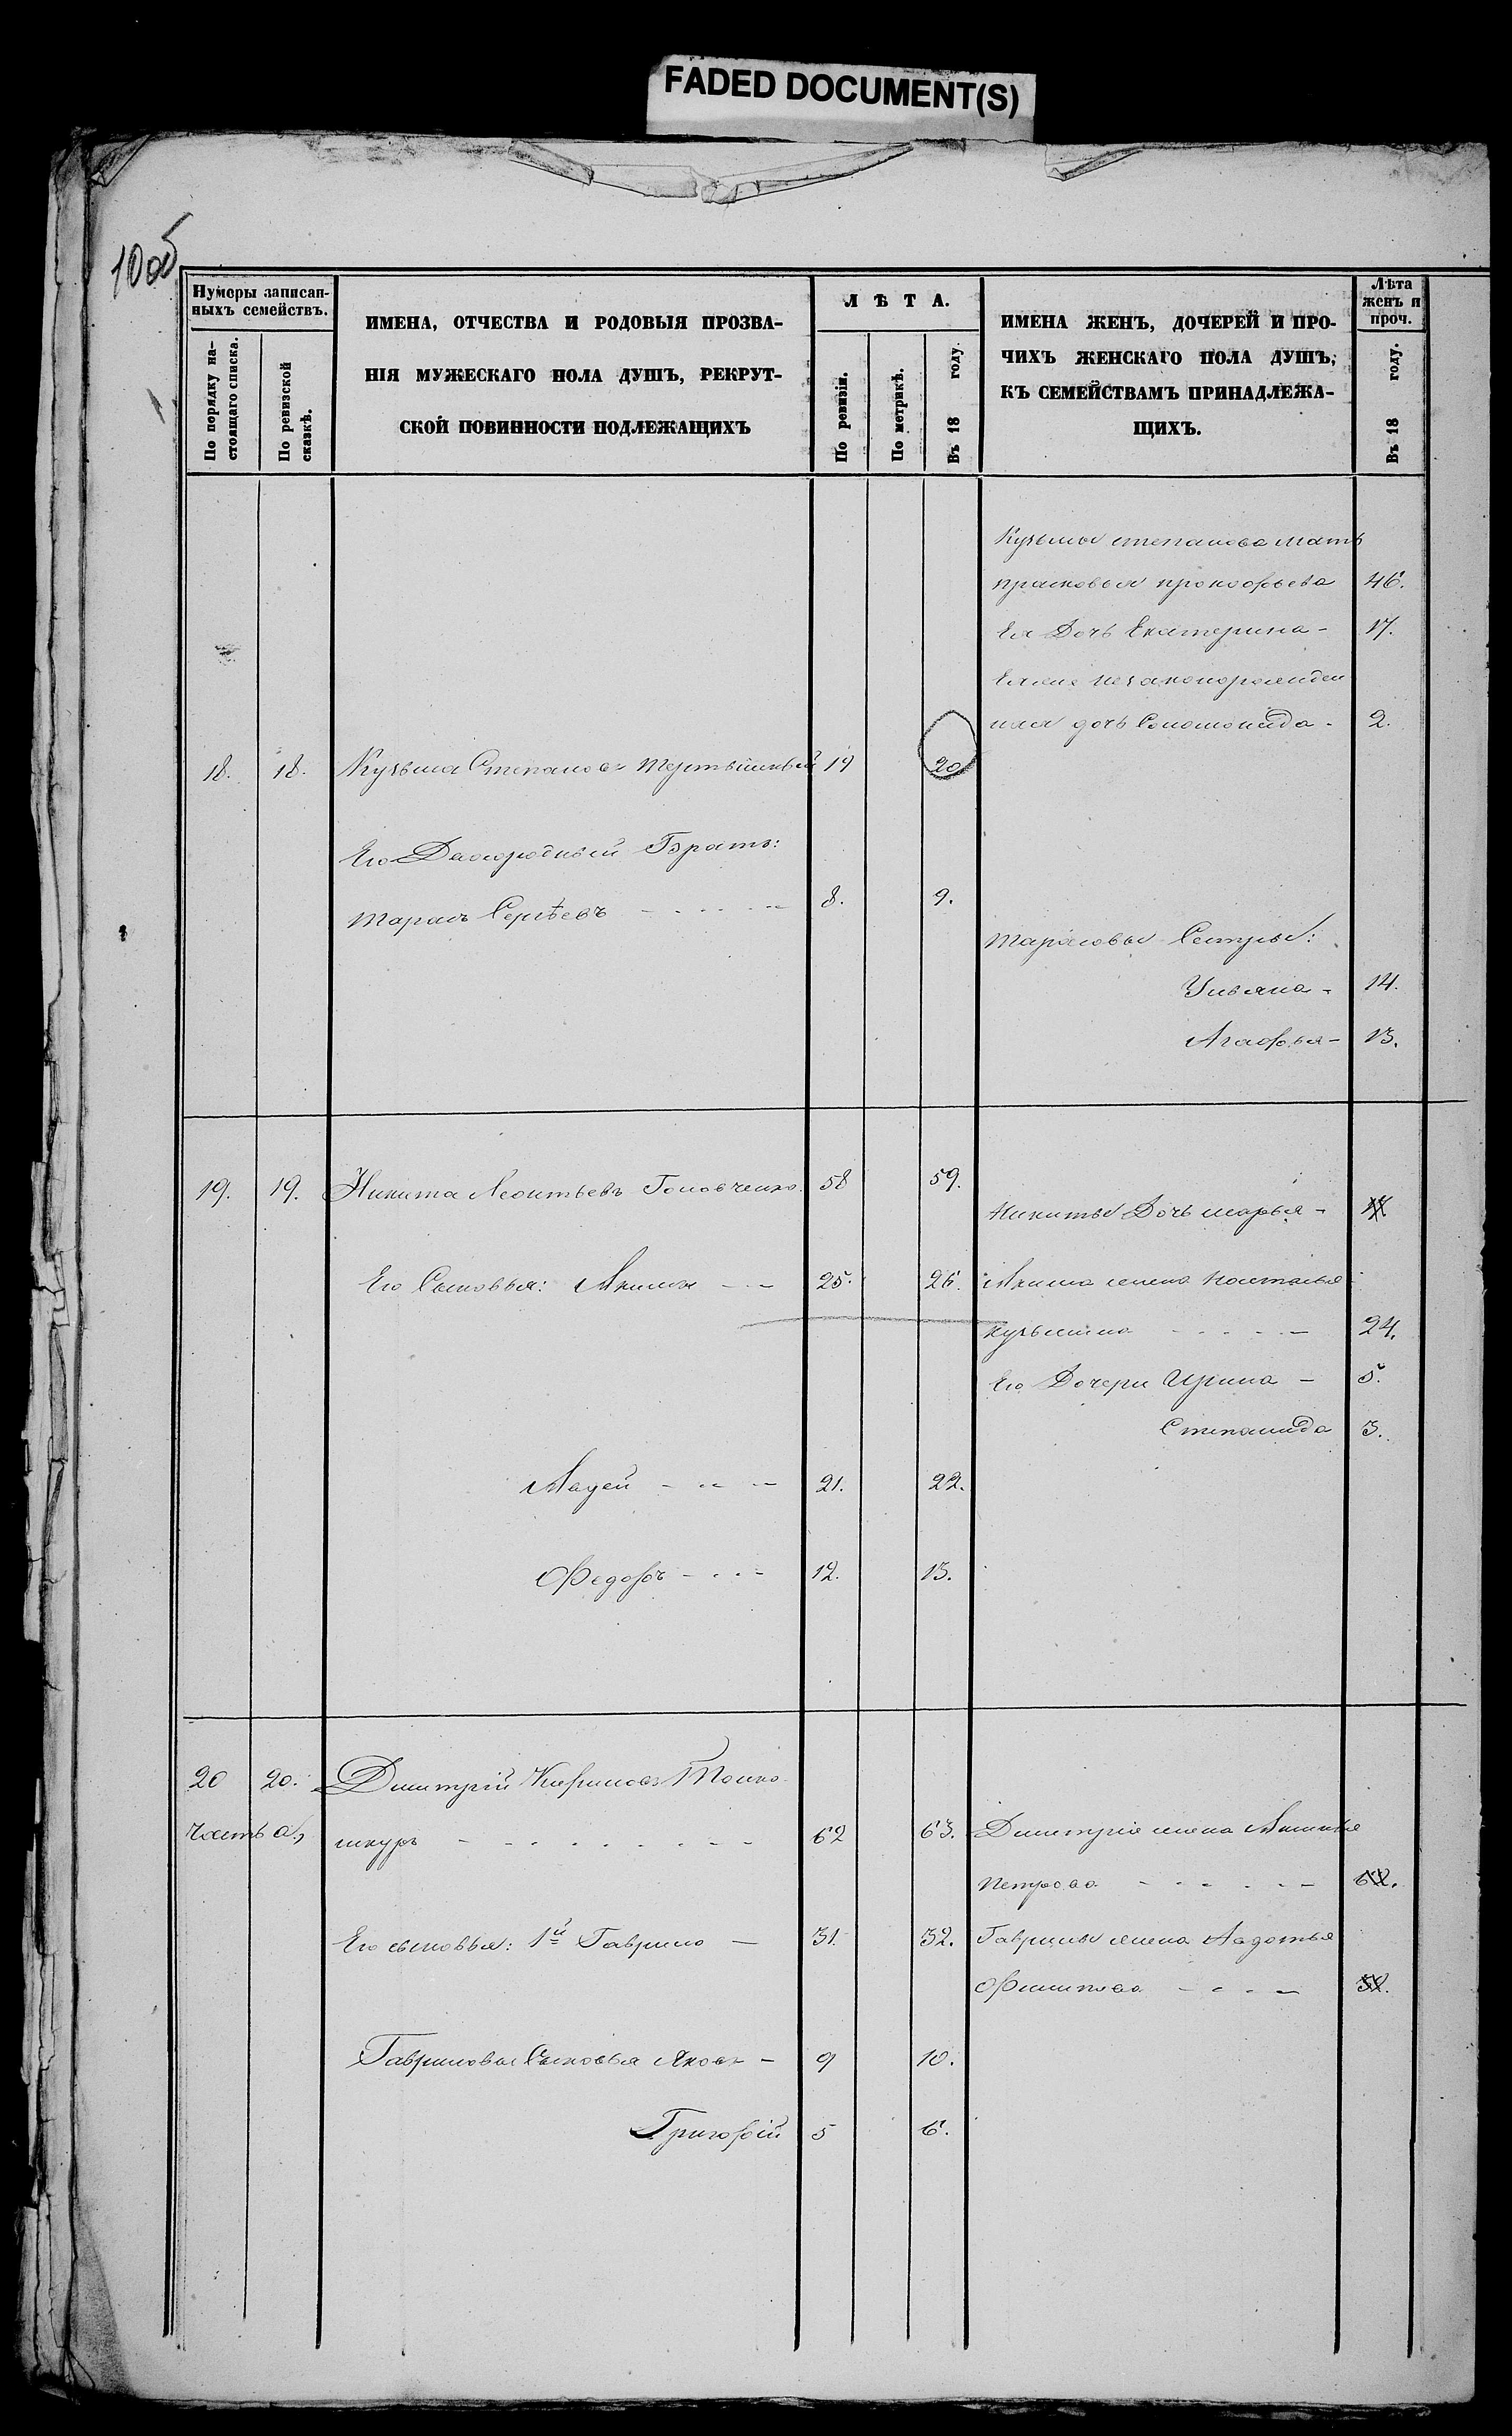 FADED DOCUMENT(S)
10 об
Нумеры записан-
ныхъ семействъ.
По порядку на-
стоящаго списка.
По ревизской
сказкѣ.
ИМЕНА, ОТЧЕСТВА И РОДОВЫЯ ПРОЗВА-
НІЯ МУЖЕСКАГО ПОЛА ДУШЪ, РЕКРУТ-
СКОЙ ПОВИННОСТИ ПОДЛЕЖАЩИХЪ
ЛѢТА.
По ревизіи.
По метрикѣ.
Въ 18 году.
ИМЕНА ЖЕНЪ, ДОЧЕРЕЙ И ПРО-
ЧИХЪ ЖЕНСКАГО ПОЛА ДУШЪ,
КЪ СЕМЕЙСТВАМЪ ПРИНАДЛЕЖА-
ЩИХЪ.
Лѣта
женъ и
проч.
Въ 18 году.
Кузьмы степанова мать
прасковья прокофьева 46.
Ея Дочь Екатерина - 17.
незаконорожден
ная дочь Соломонида - 2.
18. 18. Кузьма Степановъ 19 20
Его Двоюродный Братъ:
Тарасъ Сергѣевъ 8. 9.
Тарасовы Сестры:
Ульяна - 14.
Агафья - 13.
19. 19. Никита Леонтьевъ Головченко 58 59.
Никиты Дочь марья -
Его Сыновья: Акимъ 25. 26. Акима жена наталья
кузьмина 24.
Его Дочери Ирина - 5.
Степанида 3.
21. 22.
Федоръ 12. 13.
20 20. Дмитрій Тонко-
часть а, шкуръ 62 63. Дмитрія жена
петрова 62.
Его сыновья: 1й Гаврило 31. 32. Гаврилы жена Авдотья
Филипова
Гавриловы Сыновья Яковъ - 9 10.
Григорій 5 6.